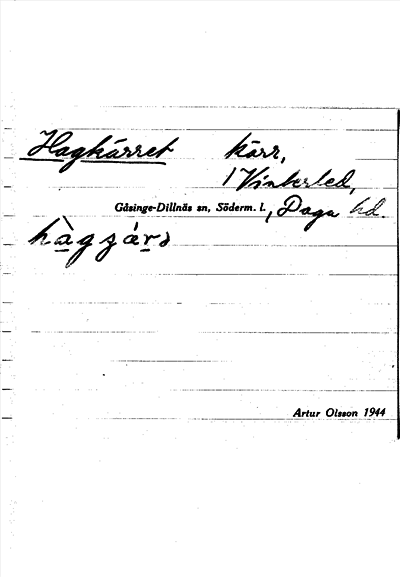 Hagkärret kärr,
/ Vinterled,
Gåsinge-Dillnäs sn, Söderm. l., Daga hd.
Artur Olsson 1944